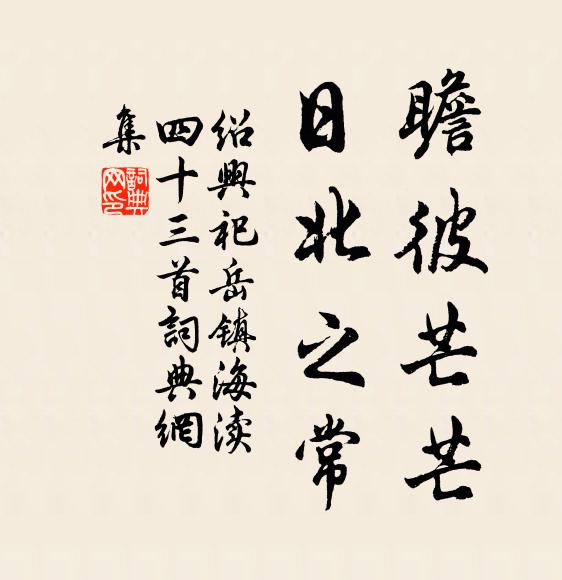 瞻彼芒芒
日北之常
绍興祀岳镇海渎
四十三首詞典網
集
詞典
网印